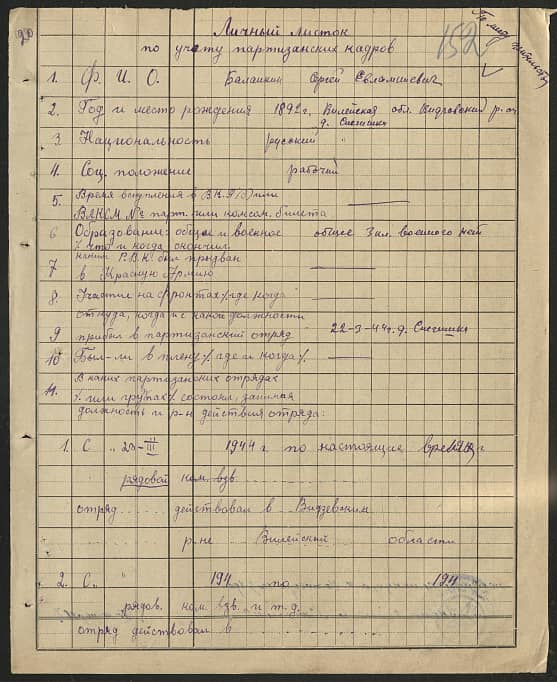 20
Личный листок
по учету партизанских кадров
152
По месту жительства
1. Ф. И. О. Балашкин Сергей Евлампиевич
2. Год и место рождения 1892 г. Вилейская обл. Видзовский р-он
д. Снегишки
3. Национальность русский
4. Соц. положение рабочий
5. Время вступления в В.К.П/б/ или
ВЛКСМ, № парт. или комсом. билета
6 Образование: общее и военное общее 3 кл. военного нет
% что и когда окончил
7 каким Р.В.К. был призван
в Красную Армию
8. Участие на фронтах % где когда
откуда, когда и с какой должности
9 прибыл в партизанский отряд 22-3-44 г. д. Снегишки
10 Был-ли в плену % где и когда %
11. В каких партизанских отрядах
% или группах % состоял, занимая
должность и р-н действия отряда:
1. С „ 23-III 1944 г. по настоящие время
рядовой ком. взв.
отряд действовал в Видзевским
р-не Вилейский области
2. С „ 194 по 194
рядов. ком. взв. и т.д.
отряд действовал в